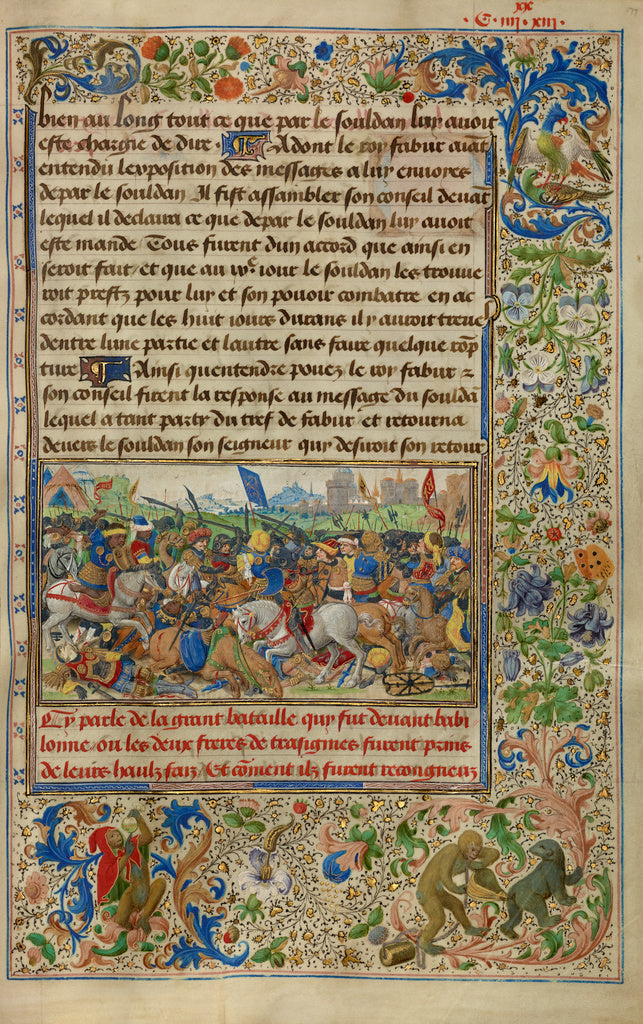 xx
· C · iiii · xiii ·
bien au long tout ce que par le souldan luy auoit
este chargie de dire · ¶ Adont le roy fabur aiãt
entendu lexposition des messages a luy enuoyes
de par le souldan Il fist assambler son conseil deuãt
lequel il declaira ce que depar le souldan luy auoit
este mande / Tous furent dun accord que ainsi en
seroit fait / et que au iour le souldan les trouue
roit prestz pour luy et son pouoir combatre en ac
cordant que les huit iours durans il y auroit treue
dentre lune partie et lautre sans faire quelque rõp
ture ¶ Ainsi quentendre pouez le roy fabur &
son conseil firent la response au message du souldã
lequel a tant party du tref de fabur et retourna
deuers le souldan son seigneur quy desiroit son retour
Cy parle de la grant bataille quy fut deuant babi
lonne / ou les deux freres de trasignies furent prins
de leurs haulz faiz / Et cõment ilz furent recongneuz